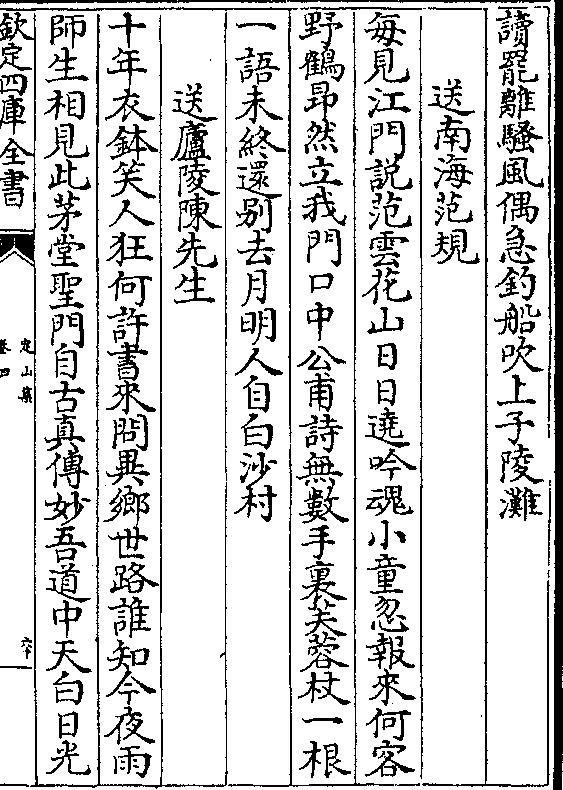 讀罷離騷風偶急釣船吹上子陵灘
送南海范規
每見江門説范雲花山日日遶吟魂小童忽報來何容
野鶴昂然立我門口中公甫詩無數手裏芙蓉杖一根
一語未終還别去月明人自白沙村
送廬陵陳先生
十年衣鉢笑人狂何許書來問異鄉世路誰知今夜雨
師生相見此茅堂聖門自古真傳妙吾道中天白日光
欽定四庫全書
定山集
卷四